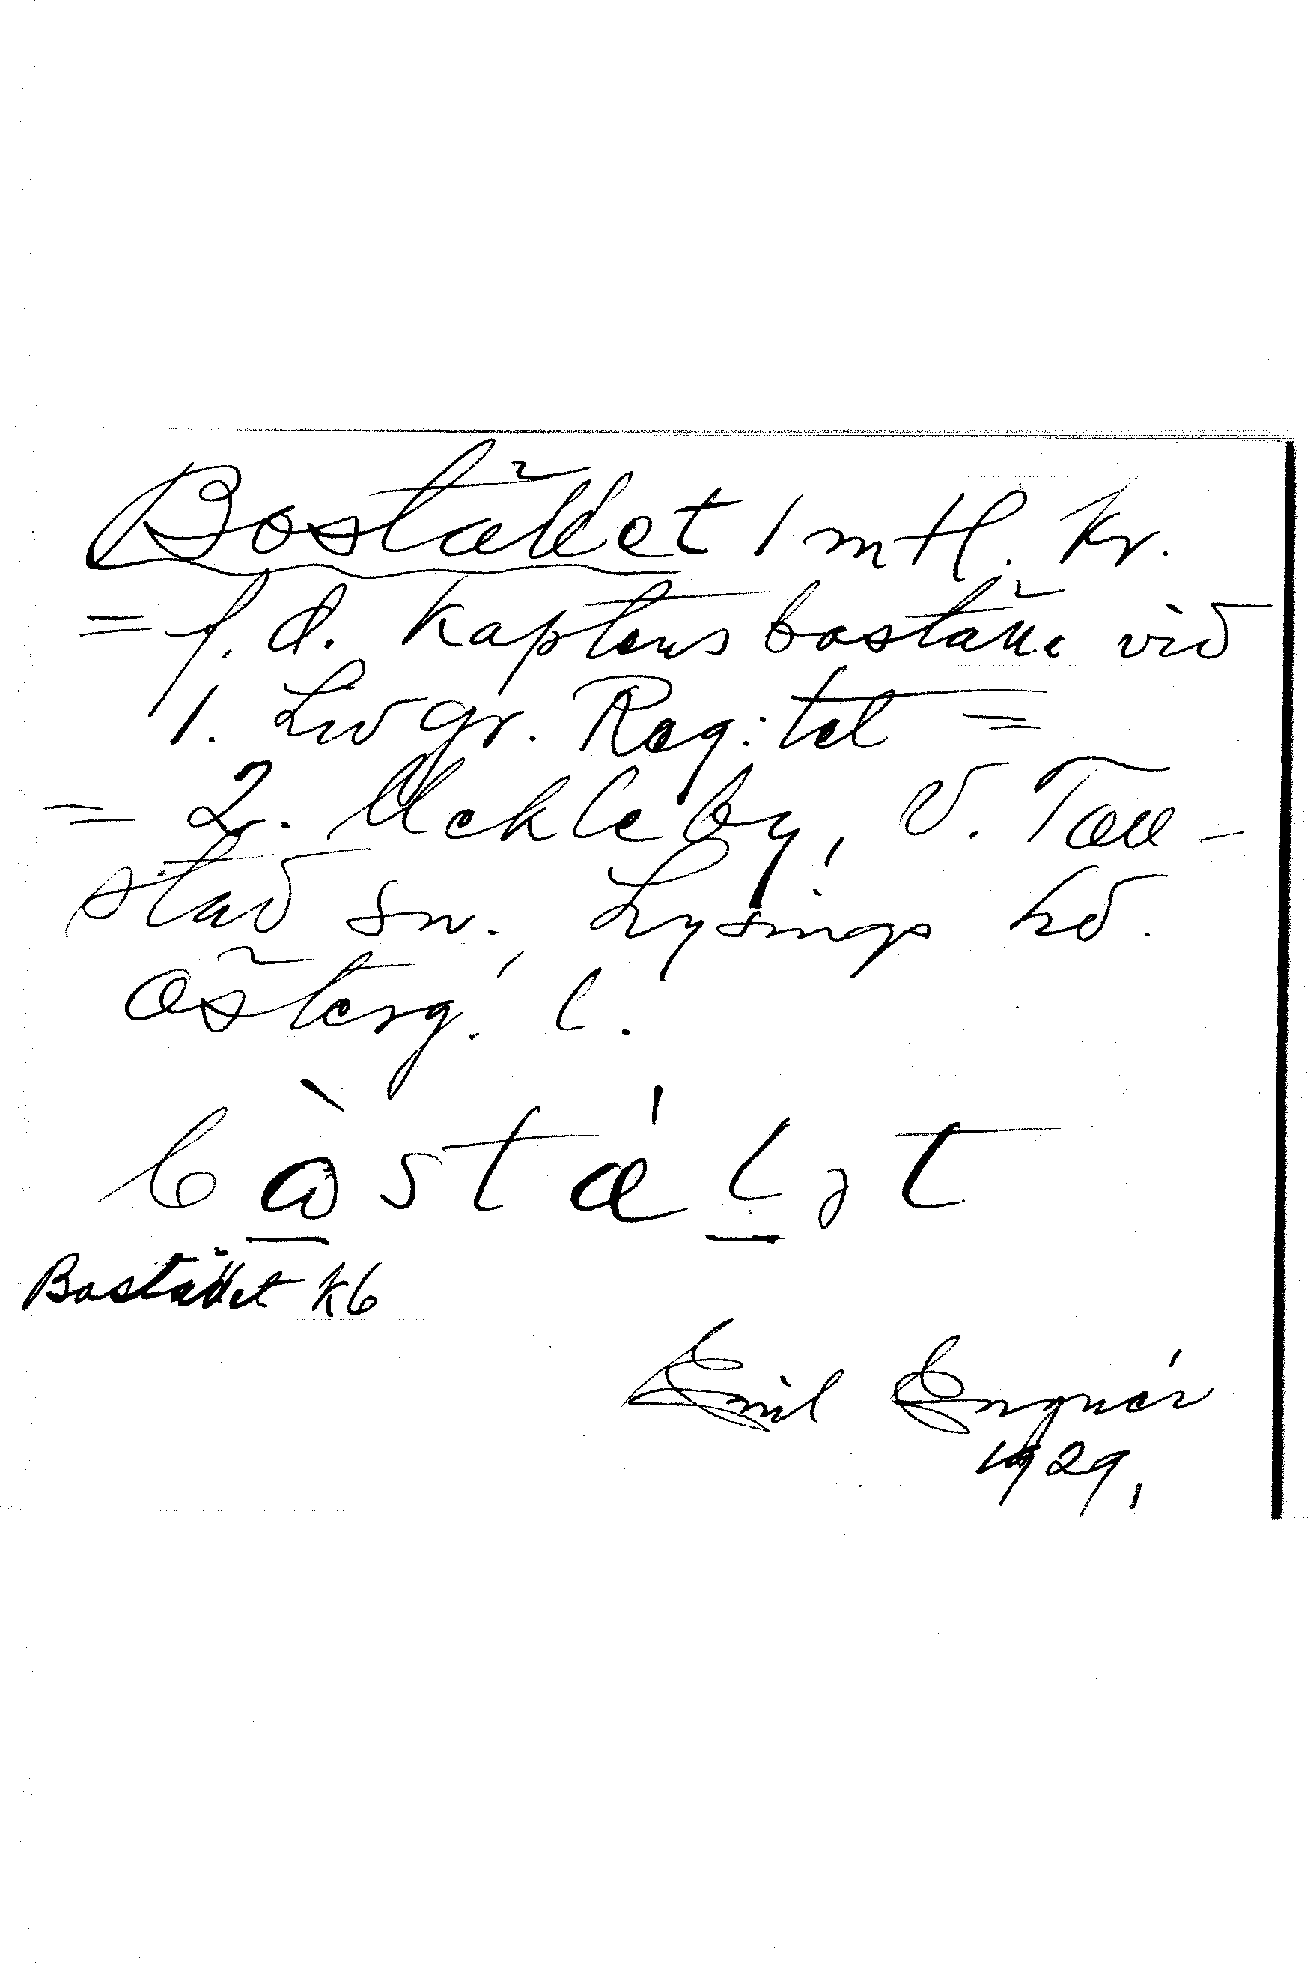 Bostället 1 mtl. kr.
= f. d. kaptensboställe vid
1. Livgr. Reg:tet =
= 2. Uckleby, V. Tol-
stad sn., Lysings hd.
Österg. l.
Bostället K6
Emil Engnér
1929.